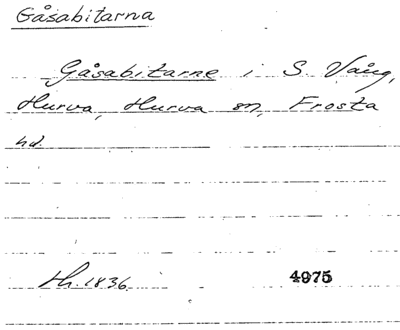 Gåsabitarna
Gåsabitarne i S. Vång,
Hurva, Hurva sn, Frosta
hd.
Hh. 1836. 4975